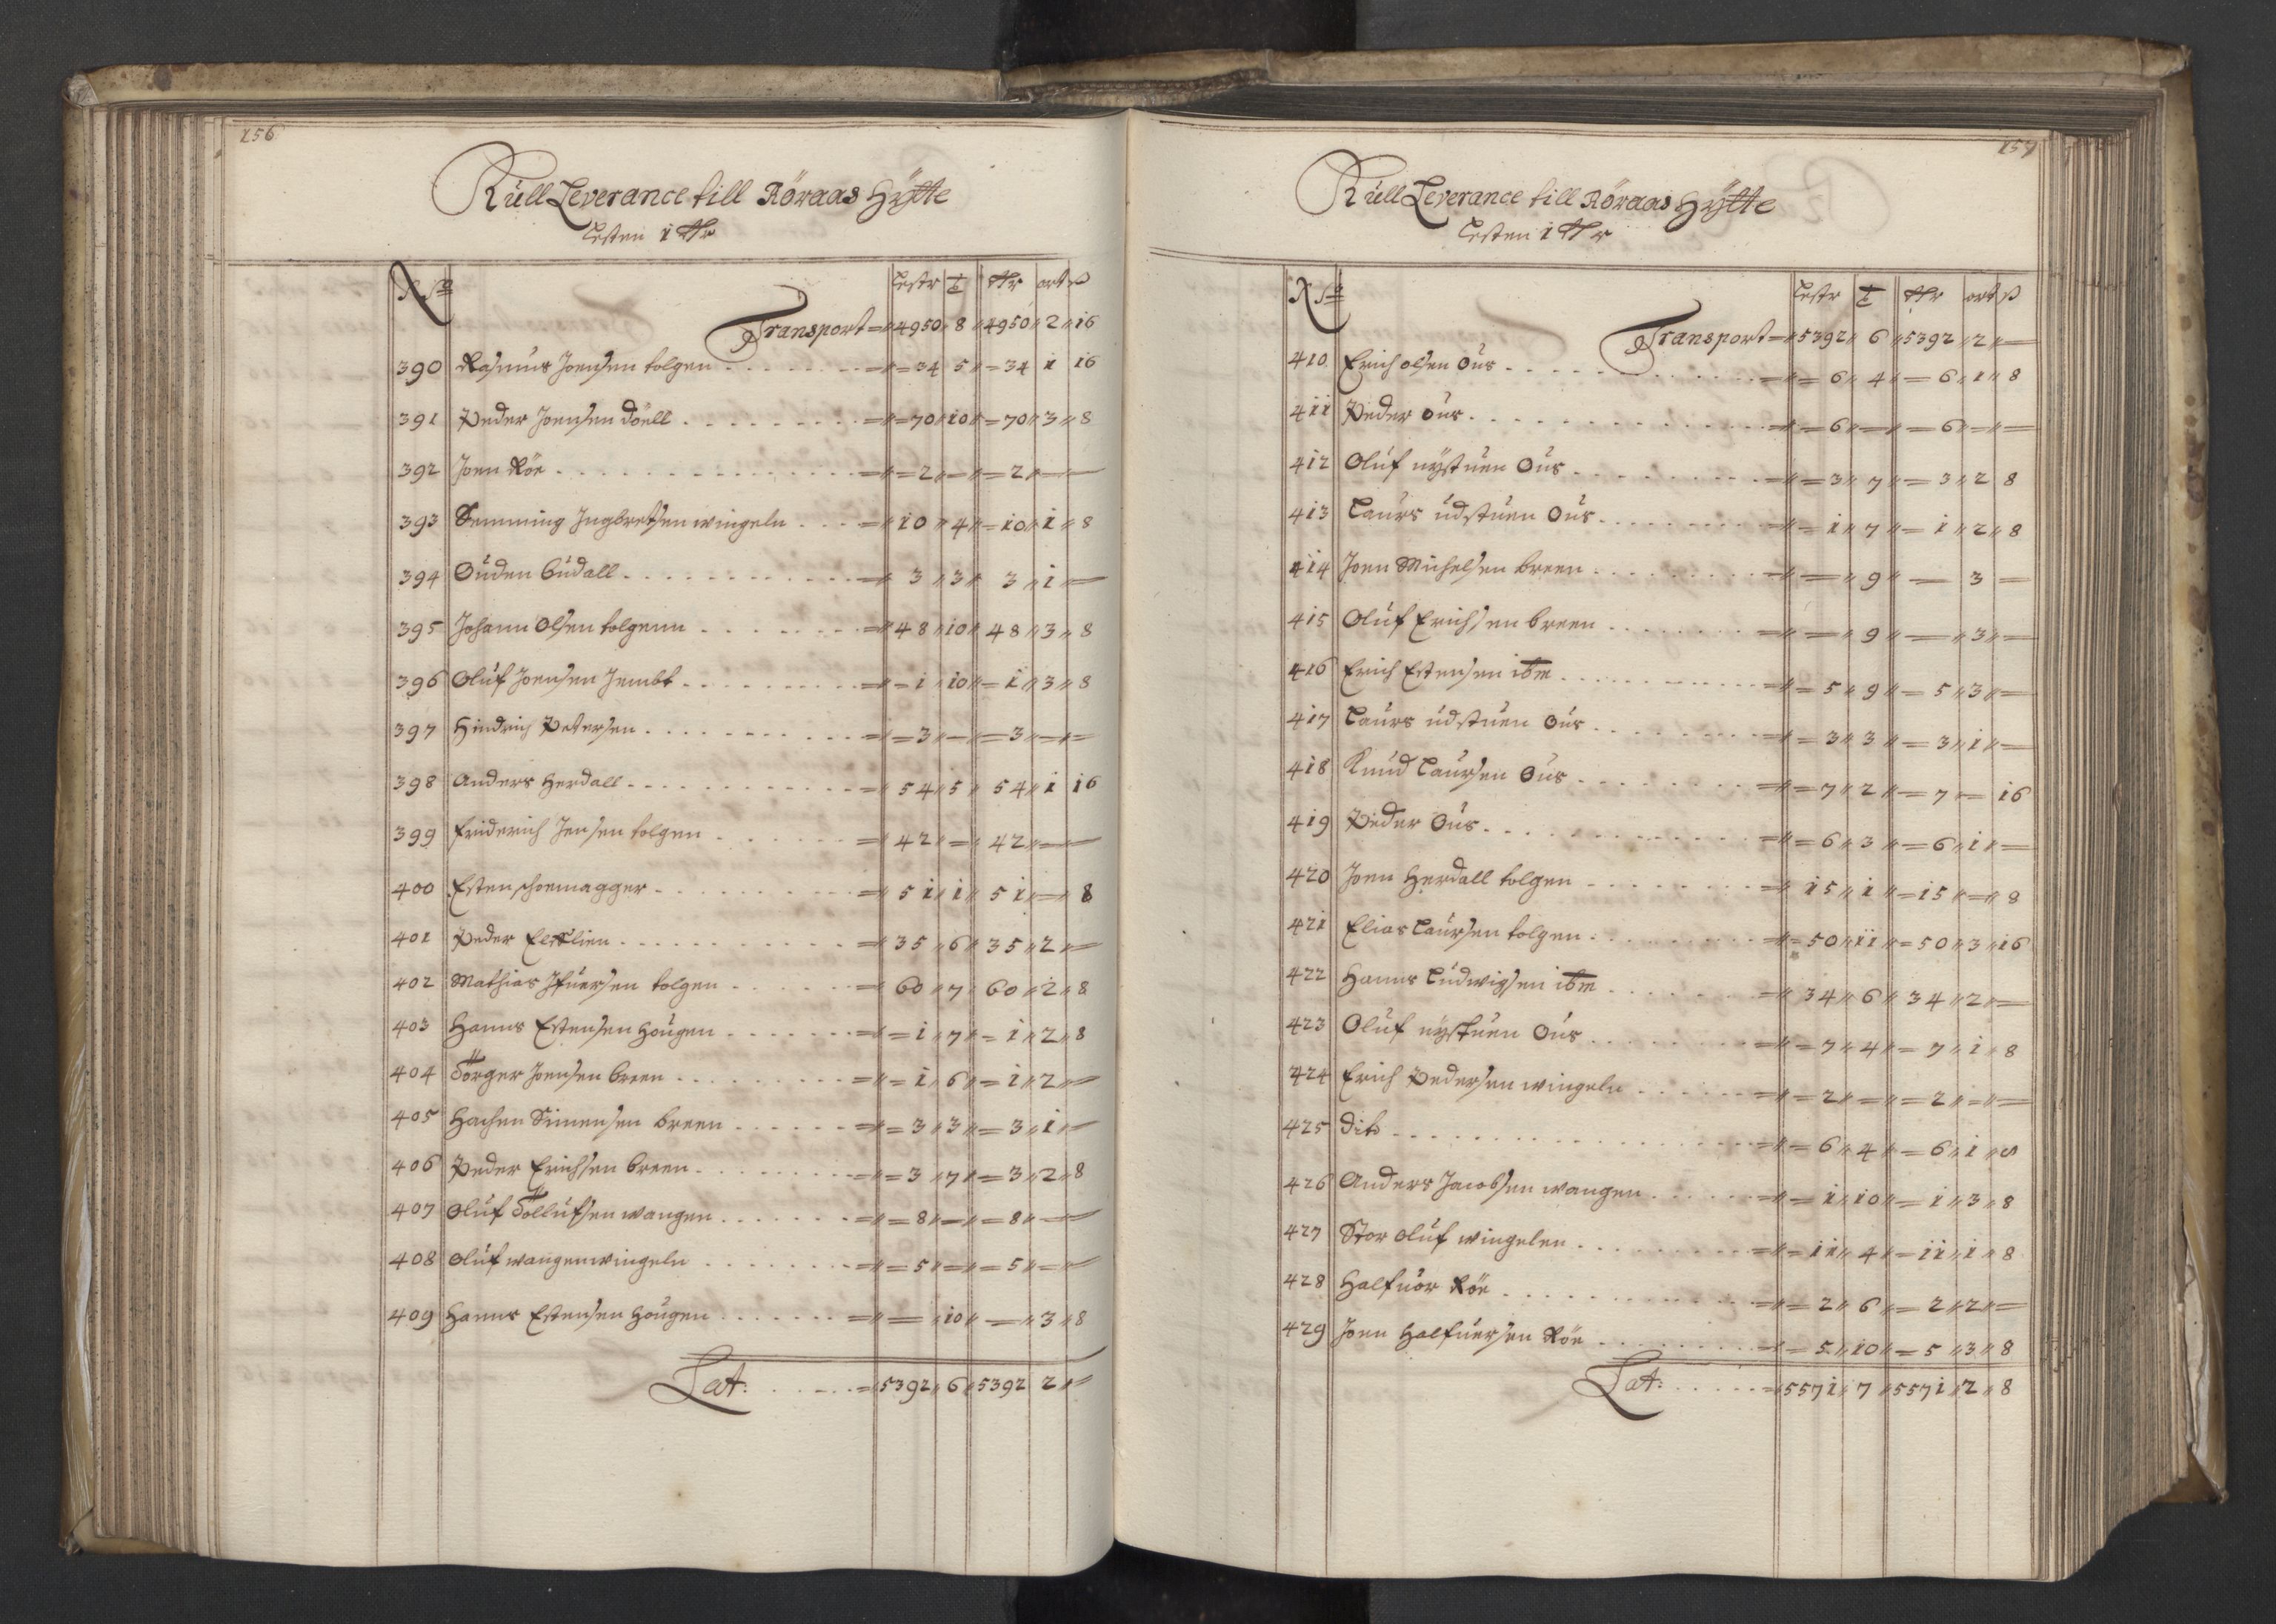 156
Küll Leverance till Röraas Hÿtte
Lesten 1 Rr
No Lestr t Rr ort ß
Transport 4950 8 4950 2 16
390 Rasmus Joensen tolgen 34 5 34 1 16
391 Peder Joensen döell 70 10 70 3 8
392 Joen Röe 2 — 2 — —
393 Semming Ingbretsen wingeln 10 4 10 1 8
394 Ouden budall 3 3 3 1 —
395 Johann Olsen tolgenn 48 10 48 3 8
396 Oluf Joensen Jembt 1 10 1 3 8
397 Hindrich Petersen 3 — 3 — —
398 Anders Herdall 54 5 54 1 16
399 Friderich Jensen tolgen 42 — 42 — —
400 Esten schoemagger 51 1 51 — 8
401 Peder 35 6 35 2 —
402 Mathias Ifuersen tolgen 60 7 60 2 8
403 Hanns Estensen Hougen 1 7 1 2 8
404 Törger Joensen breen 1 6 1 2 —
405 Hachen Simensen breen 3 3 3 1 —
406 Peder Erichsen breen 3 7 3 2 8
407 Oluf Tollufsen wangen 8 — 8 — —
408 Oluf wangenwingeln 5 — 5 — —
409 Hanns Estensen Hougen — 10 — 3 8
Lat: 5392 6 5392 2 —
157
Küll Leverance till Röraas Hÿtte
Lesten 1 Rr
No Lestr t Rr ort ß
Transport 5392 6 5392 2 —
410 Erich olsen Ous 6 4 6 1 8
411 Peder Ous 6 — 6 — —
412 Oluf nÿstuen Ous 3 7 3 2 8
413 Laurs udstuen Ous 1 7 1 2 8
414 Joen Michelsen breen — 9 — 3 —
415 Oluf Erichsen breen — 9 — 3 —
416 Erich Estensen ibm 5 9 5 3 —
417 Laurs udstuen Ous 3 3 3 1 —
418 Knud Laursen Ous 7 2 7 — 16
419 Peder Ous 6 3 6 1 —
420 Joen Herdall tolgen 15 1 15 — 8
421 Elias Laursen tolgen 50 11 50 3 16
422 Hanns Ludwigsen ibm 34 6 34 2 —
423 Oluf nÿstuen Ous 7 4 7 1 8
424 Erich Pedersen wingeln 2 — 2 — —
425 dito 6 4 6 1 8
426 Anders Jacobsen wangen 1 10 1 3 8
427 Stor Oluf wingelen 11 4 11 1 8
428 Halfuor Röe 2 6 2 2 —
429 Joen Halfuersen Röe 5 10 5 3 8
Lat: 5571 7 5571 2 8